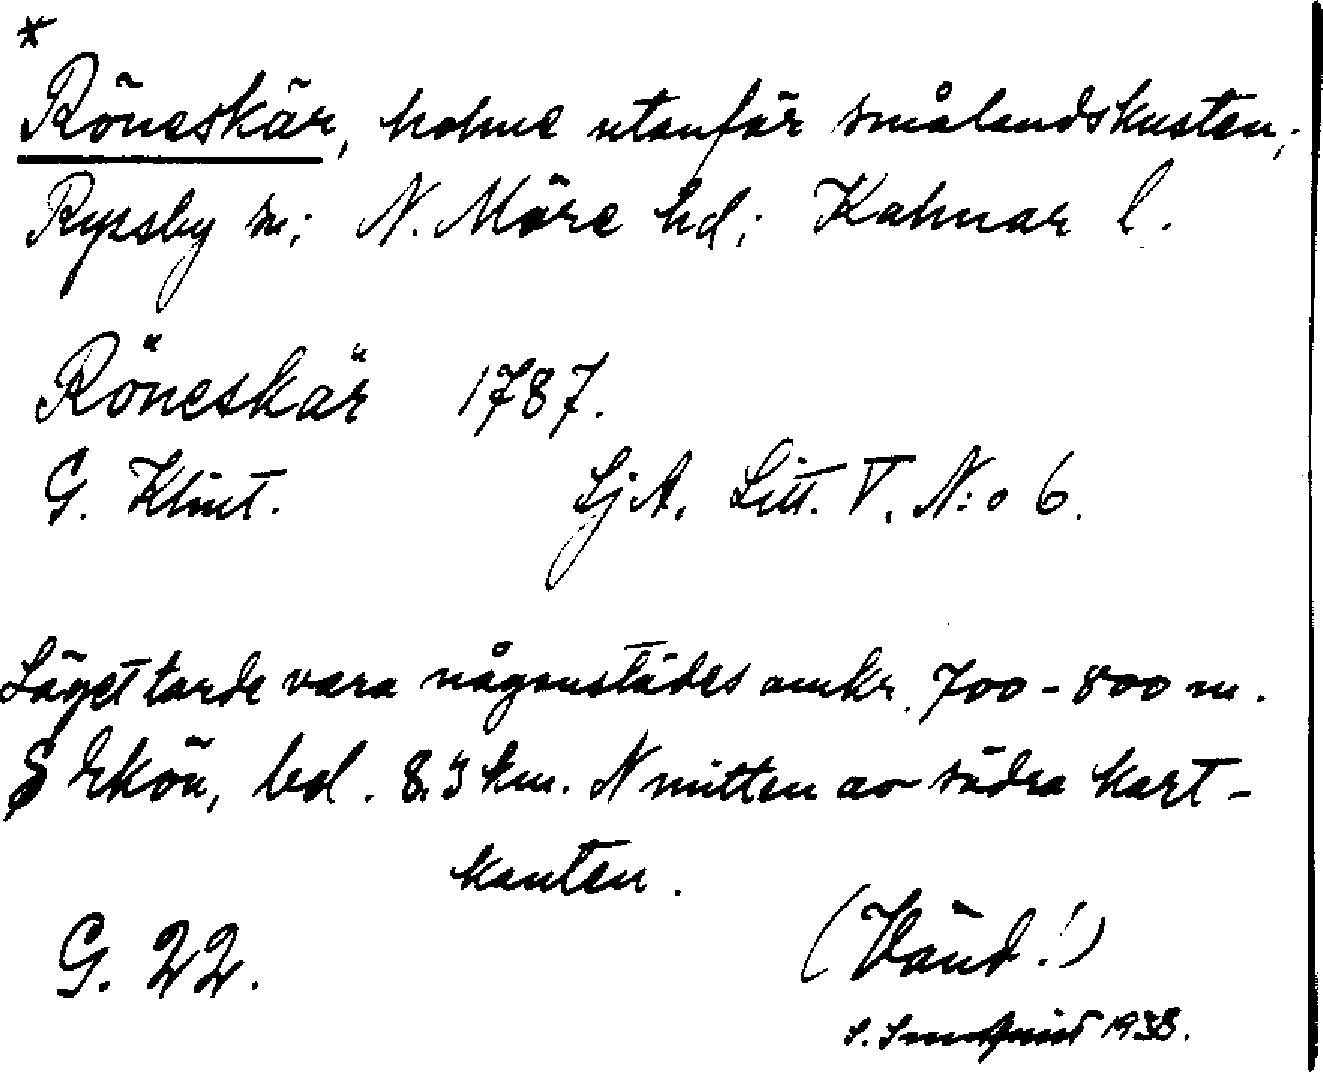 *
Röneskär, holme utanför smålandskusten;
Ryssby sn; N. Möre hd; Kalmar l.
Röneskär 1787.
G. Klint. SjA. Litt. V. N:o 6.
Läget torde vara någonstädes omkr. 700-800 m.
S Ekön, bel. 8.3 km. N mitten av södra kart-
kanten.
G. 22.
(Vänd!)
S. 1938.